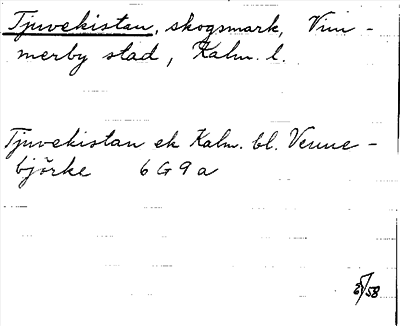 Tjuvekistan, skogsmark, Vim-
merby stad, Kalm. l.
Tjuvekistan ek Kalm. bl. Venne-
björke 6 G 9 a
/58